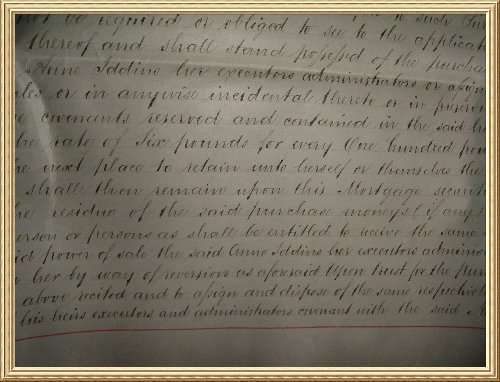 not be required or obliged to see to the applicat
thereof and shall stand possessed of the purcha
Anne Iddins her executors administrators or assign
or in anywise incidental thereto or in
covenants reserved and contained in the said
rate of Six pounds for every One hundred poun
next place to retain unto herself or themselves the
shall then remain upon this Mortgage securit
he residue of the said purchase moneys (if any)
erson or persons as shall be entitled to receive the same
power of sale the said Anne Iddins her executors adminis
her by way of reversion as aforesaid Upon trust for the pur
above recited and to assign and dispose of the same respectivel
his heirs executors and administrators covenant with the said A